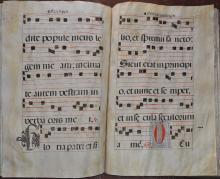 dite popule meus le
gem me am: inclina
te aurem vestram in
verba oris me i.
lo ria patri et fi
lio, et spiritui sancto:
Sicut erat in princi pi
o, et nunc et semper,
et in sæcula sæculorum
a me,